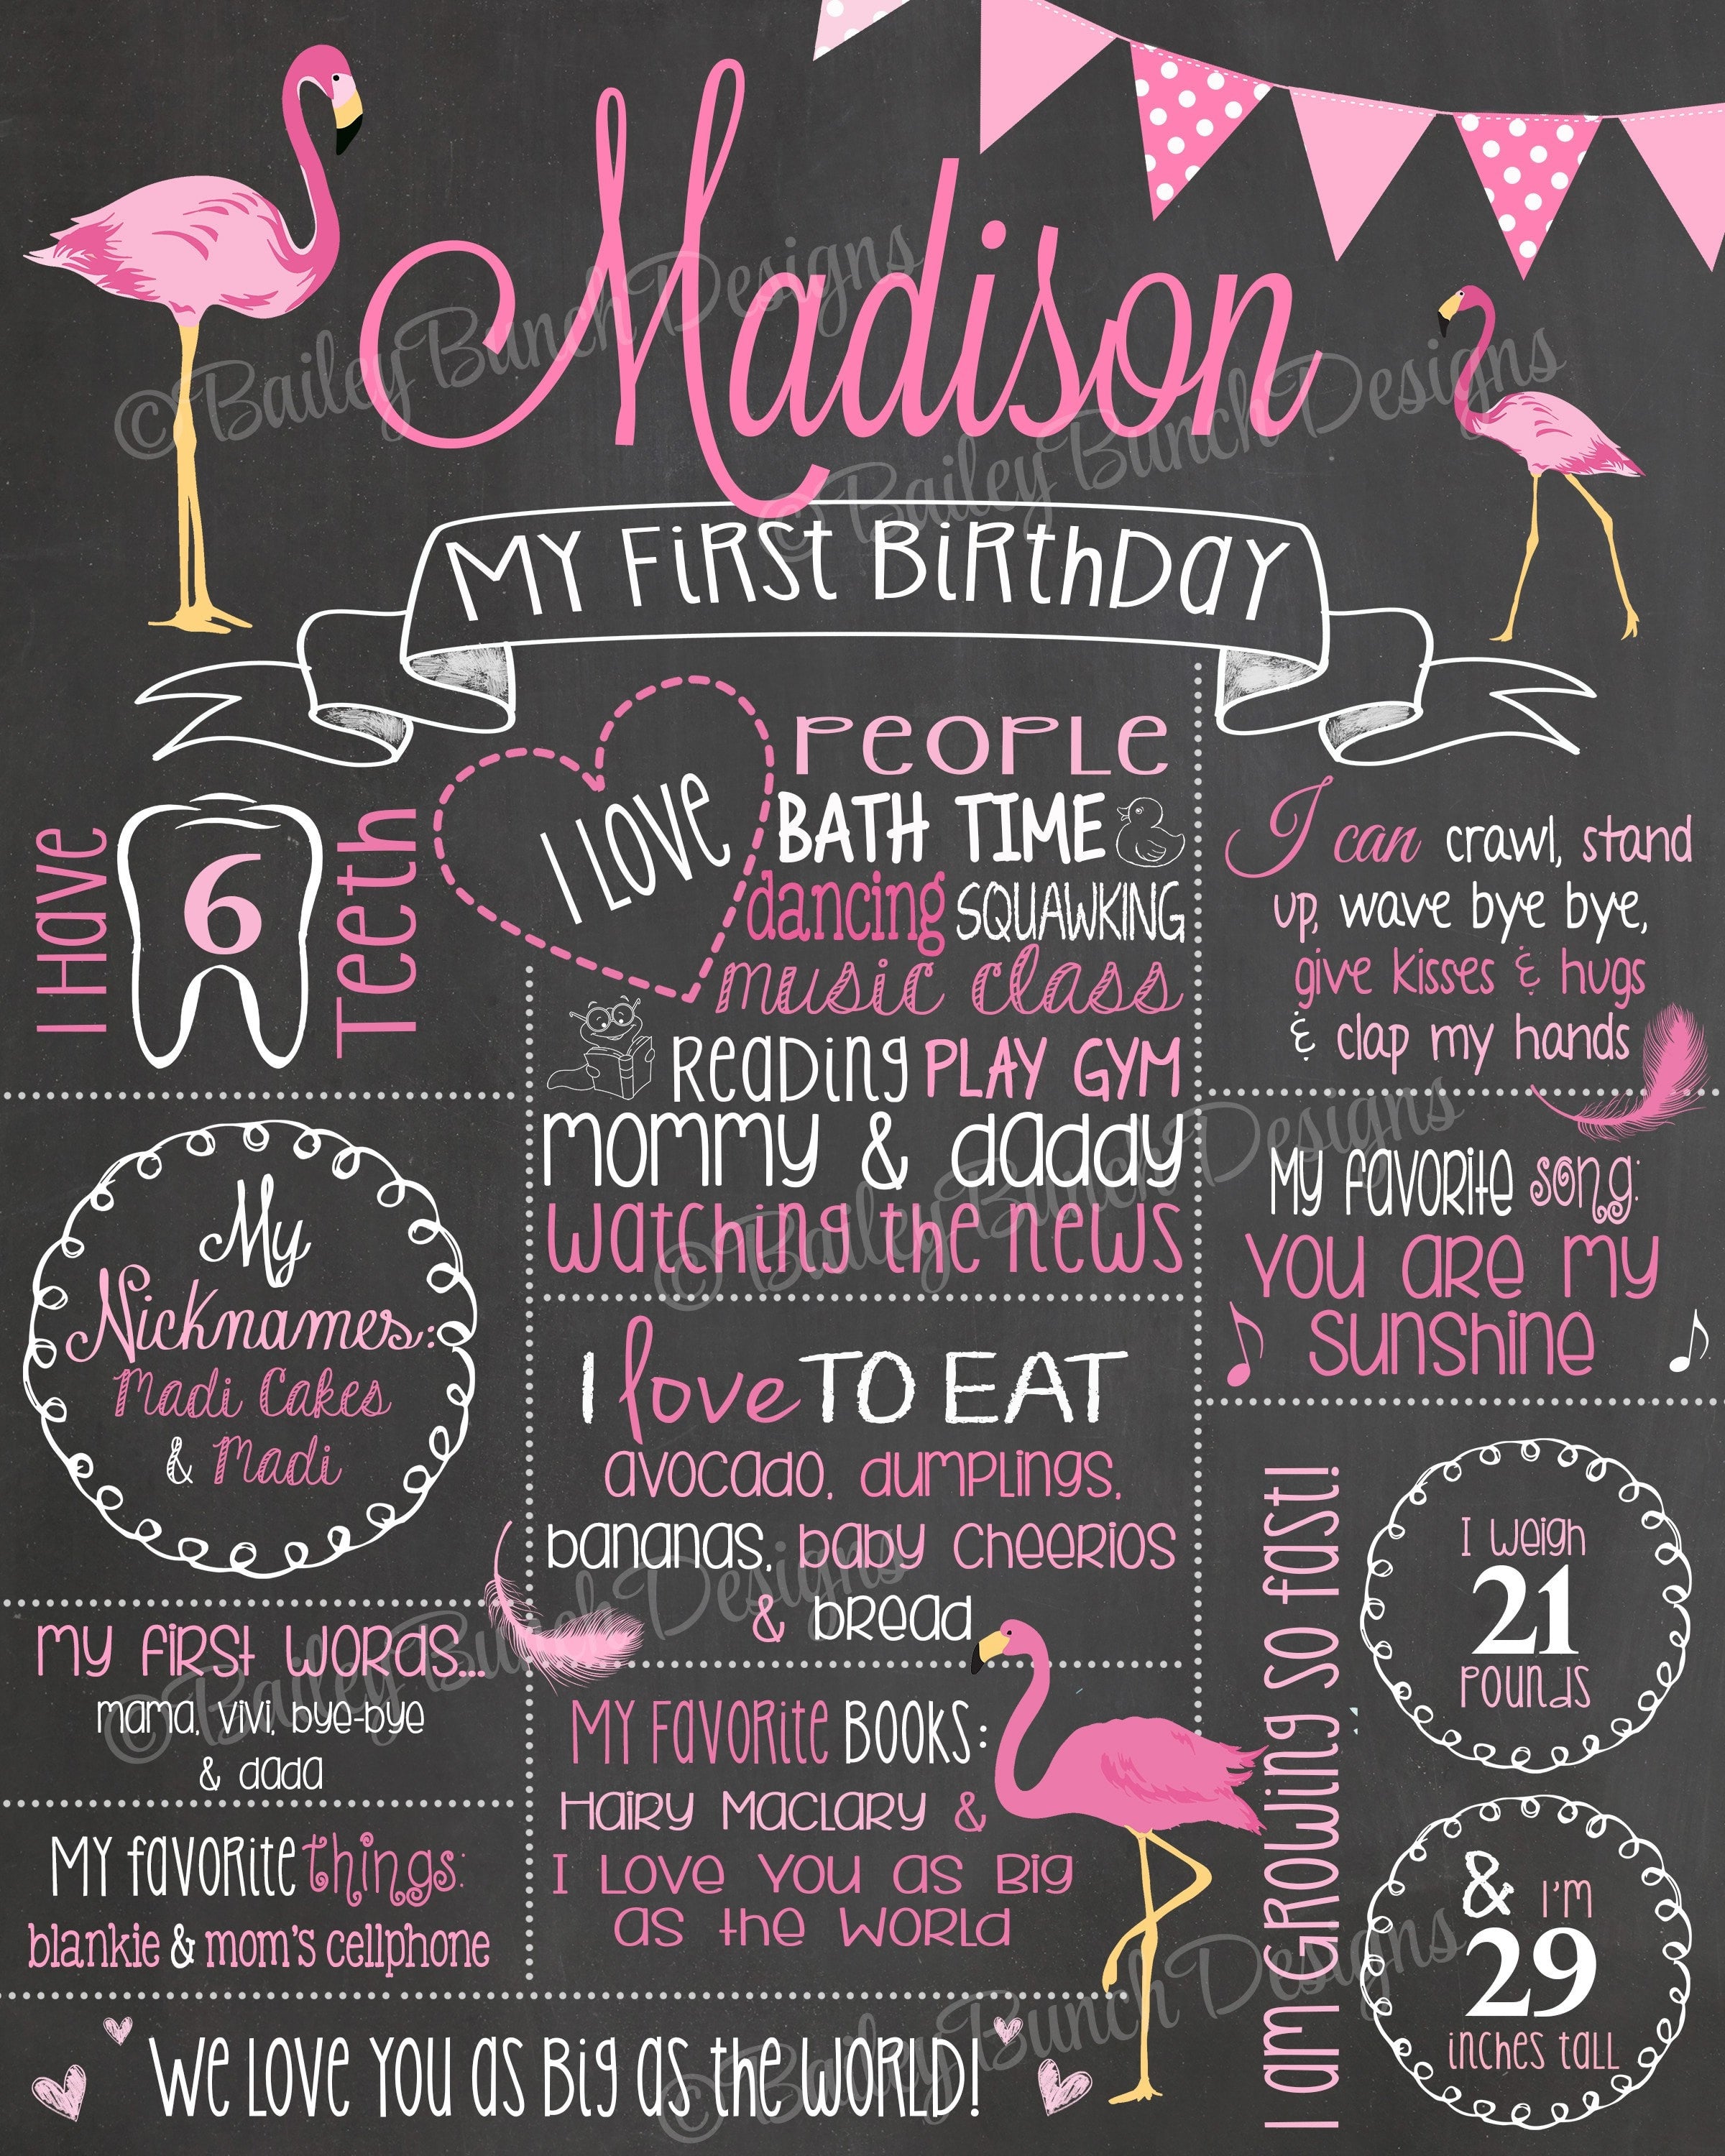 Madison
MY FiRSt BiRthDay
I Have
6
Teeth
I LOVE
PEOPLE
BATH TIME
dancing SQUAWKING
music class
Reading PLAY GYM
mommy & daddy
watching the news
I can crawl, stand
up, wave bye bye,
give kisses & hugs
& clap my hands
My
Nicknames:
Madi Cakes
& Madi
My favorite song:
You are my
Sunshine
I love TO EAT
avocado, dumplings,
bananas, baby cheerios
& bread
my first words...
mama, vivi, bye-bye
& dada
My favorite things:
blankie & mom's cellphone
My favorite BOOKS:
Hairy Maclary &
I Love You as Big
as the World
I am GROWing so fast!
I weigh
21
pounds
& I'm
29
inches tall
We LOVE YOU as Big as the WORLD!
©Bailey Bunch Designs
©Bailey Bunch Designs
©Bailey Bunch Designs
©Bailey Bunch Designs
©Bailey Bunch Designs